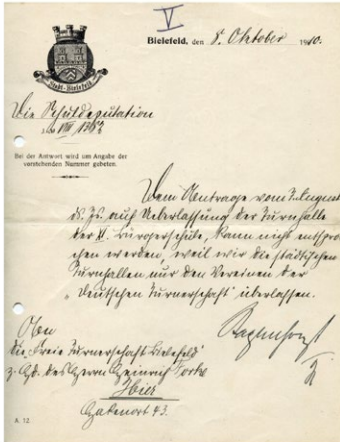 V
Bielefeld, den 8. Oktober 1910.
Stadt-Bielefeld
Die Schuldeputation
J. No VIII
Bei der Antwort wird um Angabe der
vorstehenden Nummer gebeten.
Dem Antrage vom 7. August
ds. Js. auf Ueberlassung der Turnhalle
der XI. Bürgerschule, kann nicht entspro-
chen werden, weil wir die städtischen
Turnhallen nur den Vereinen der
„Deutschen Turnerschaft" überlassen.
An
die „Freie Turnerschaft Bielefeld"
z. Hd. des Herrn Heinrich
Hier
43.
A. 12.